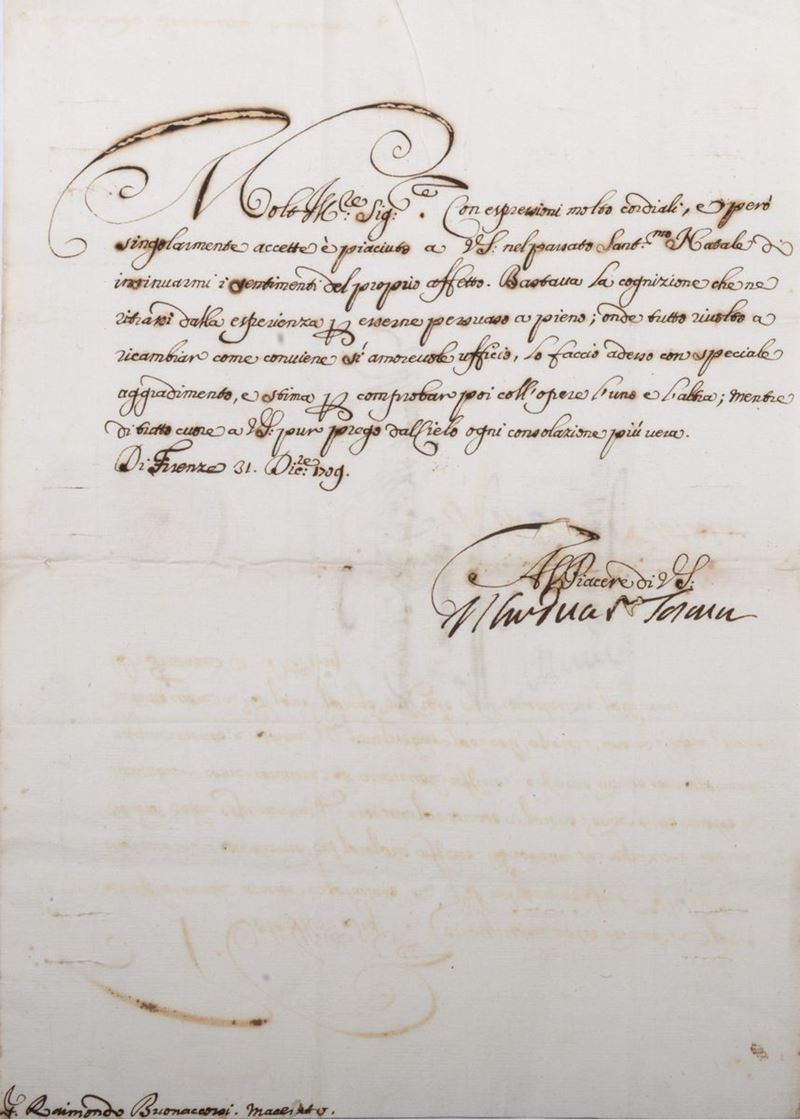 Molto Ill:re Sig:re. Con espressioni molto cordiali, e però
singolarmente accette è piaciuto a V.S: nel passato Sant:mo Natale di
insinuarmi i sentimenti del proprio affetto. Bastava la cognizione che ne
ritrassi dalla esperienza per esserne persuaso a pieno; onde tutto rivolto a
ricambiar come conviene sì amorevole ufficio, lo faccio adesso con speciale
aggradimento, e stima per comprobar poi coll'opere l'uno e l'altra; mentre
di tutto cuore a V.S: pur prego dal Cielo ogni consolazione più vera.
Di Firenze 31. Dic:re 1709.
Al Piacere di V.S:
Toscana
S. Raimondo Buonaccorsi. Macerata.